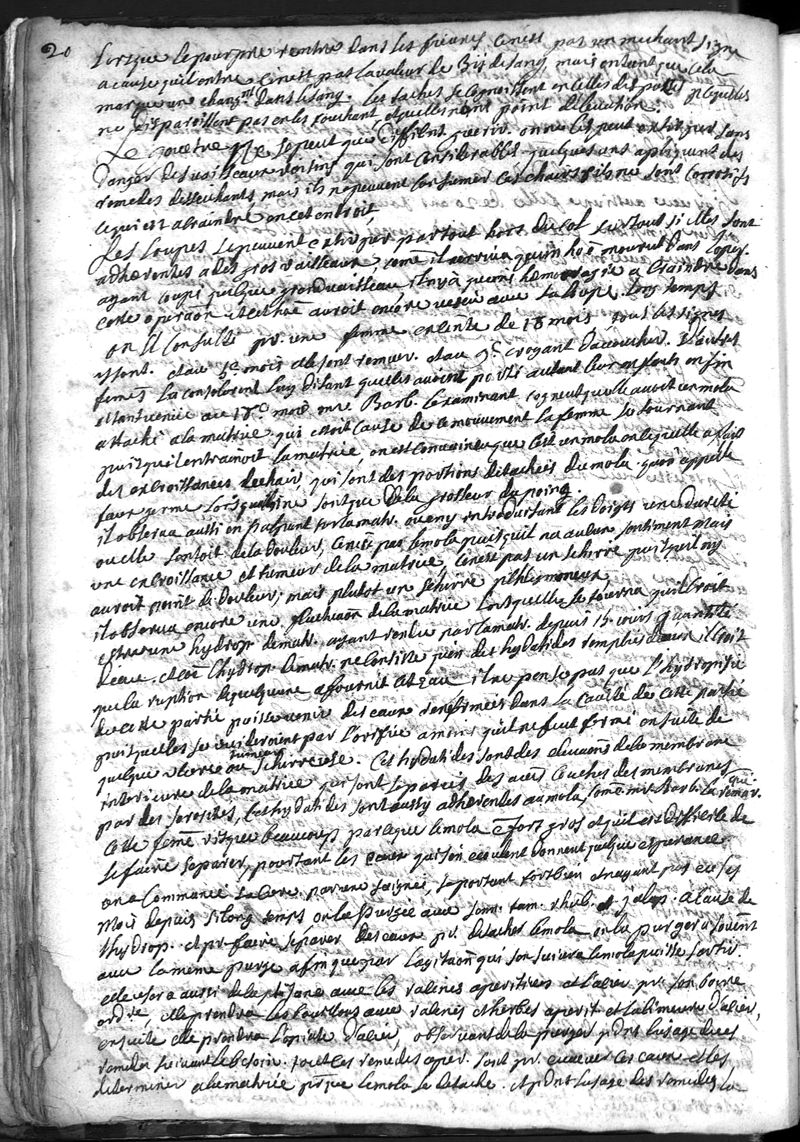 20
Lorsque le pourpre rentre dans les fievres ce nest pas un mechant signe
a cause quil entre ce nest pas la valeur de de sang mais entant que cela
marque une chang.nt dans le sang. les taches se cognoissent en celles du pourpre
ne disparoissent pas en les touchant et quelles nont point delevation
Le gouetre se peut que difficilnt guerir. on ne les peut extirper sans
danger des vaisseaux voisins qui sont considerables quelques uns apliquent des
remedes dessechants mais ils ne peuvent consumer ces chairs sils ne sont corrosifs
ce qui est a craindre en cet endroit,
Les Loupes se peuvent extirper par tout hors du col sur tout si elles sont
adherentes a des gros vaisseaux come il arriva quun home mourut dans loper.
ayant coupé quelque grand vaisseau il ny a quune hemorragie a craindre dans
cette operaon et cet home auroit encore vescu avec sa loupe long temps
on a consulté pr. une femme enceinte de 18 mois tous les signes
estont. et au 5e mois elle sent remuer. et au 9e croyant daccoucher. D'autres
femes la consolerent luy disant quelles avoient porté autant leur enfants enfin
estant venue au 18e mois mre Barb. lexaminant cogneut quelle avoit un mola
attaché a la matrice qui estoit cause de ce mouvement la femme se tournant
puisquil entrainoit la matrice, on est convaincu que cest un mola en ce quelle a fait
des excroissances de chair, qui sont des portions detachées du mola quon appelle
faux germe lors quelles ne sont que de la grosseur du poing
il observa aussi en palpant sur la matr. ou en y introduisant les doigts une dureté
ou elle sentoit de la douleur, ce nest pas le mola puisquil na aucun sentiment mais
une excroissance et tumeur de la matrice ce nest pas un schirre puisquil ny
auroit point de douleur; mais plutot un schirre phlegmoneux
il observa encore une fluctuaon de la matrice lorsquelle se tourna quil croit
estre une hydrop. de matr. ayant rendu par la matr. depuis 15. jours quantité
deau. et com lhydrop. de matr. ne consiste quen des hydatides remplies deau il croit
que la ruption de quelquune a fournit cet eau il ne pense pas que lhydropisie
de cette partie puisse venir des eaux renfermees dans la cavité de cette partie
puisquelles se vuideroient par lorifice a moins quil ne feut fermé ensuite de
quelque ulcere ou tumeur schirreuse. Ces hydatides sont des elevaons de la membrane
interieure de la matrice qui sont separées des autres couches des membranes
par des serosités, les hydatides sont aussy adherentes au mola, come mre Barb. la remarq.
Cette feme risque beaucoup parceque le mola est fort gros et quil est difficile de
le faire separer, pourtant les eaux qui sen ecoulent donnent quelque esperance
on a commancé la cure par une saignée, se portant fort bien et nayant pas eu ses
mois depuis si long temps on la purgée avec senn. tam. rhub. et jalap. a cause de
lhydrop. et pr. faire separer des eaux pr. detacher le mola on la purgera souvent
avec la meme purge afinque par lagitaon qui sen suivra le mola puisse sortir.
elle usera aussi de la ptisane avec les racines aperitives et lacier pr. son boire
ord.re, elle prendra les bouillons avec racines et herbes aperit et la limeure dacier,
ensuite elle prendra lopiate dacier, observant de la purger pdnt lusage de ces
remedes suivant le besoin. tout ces remedes aper. sont pr. evacuer ces eaux et les
determiner a la matrice pr que le mola se detache. et pdnt lusage des remedes la